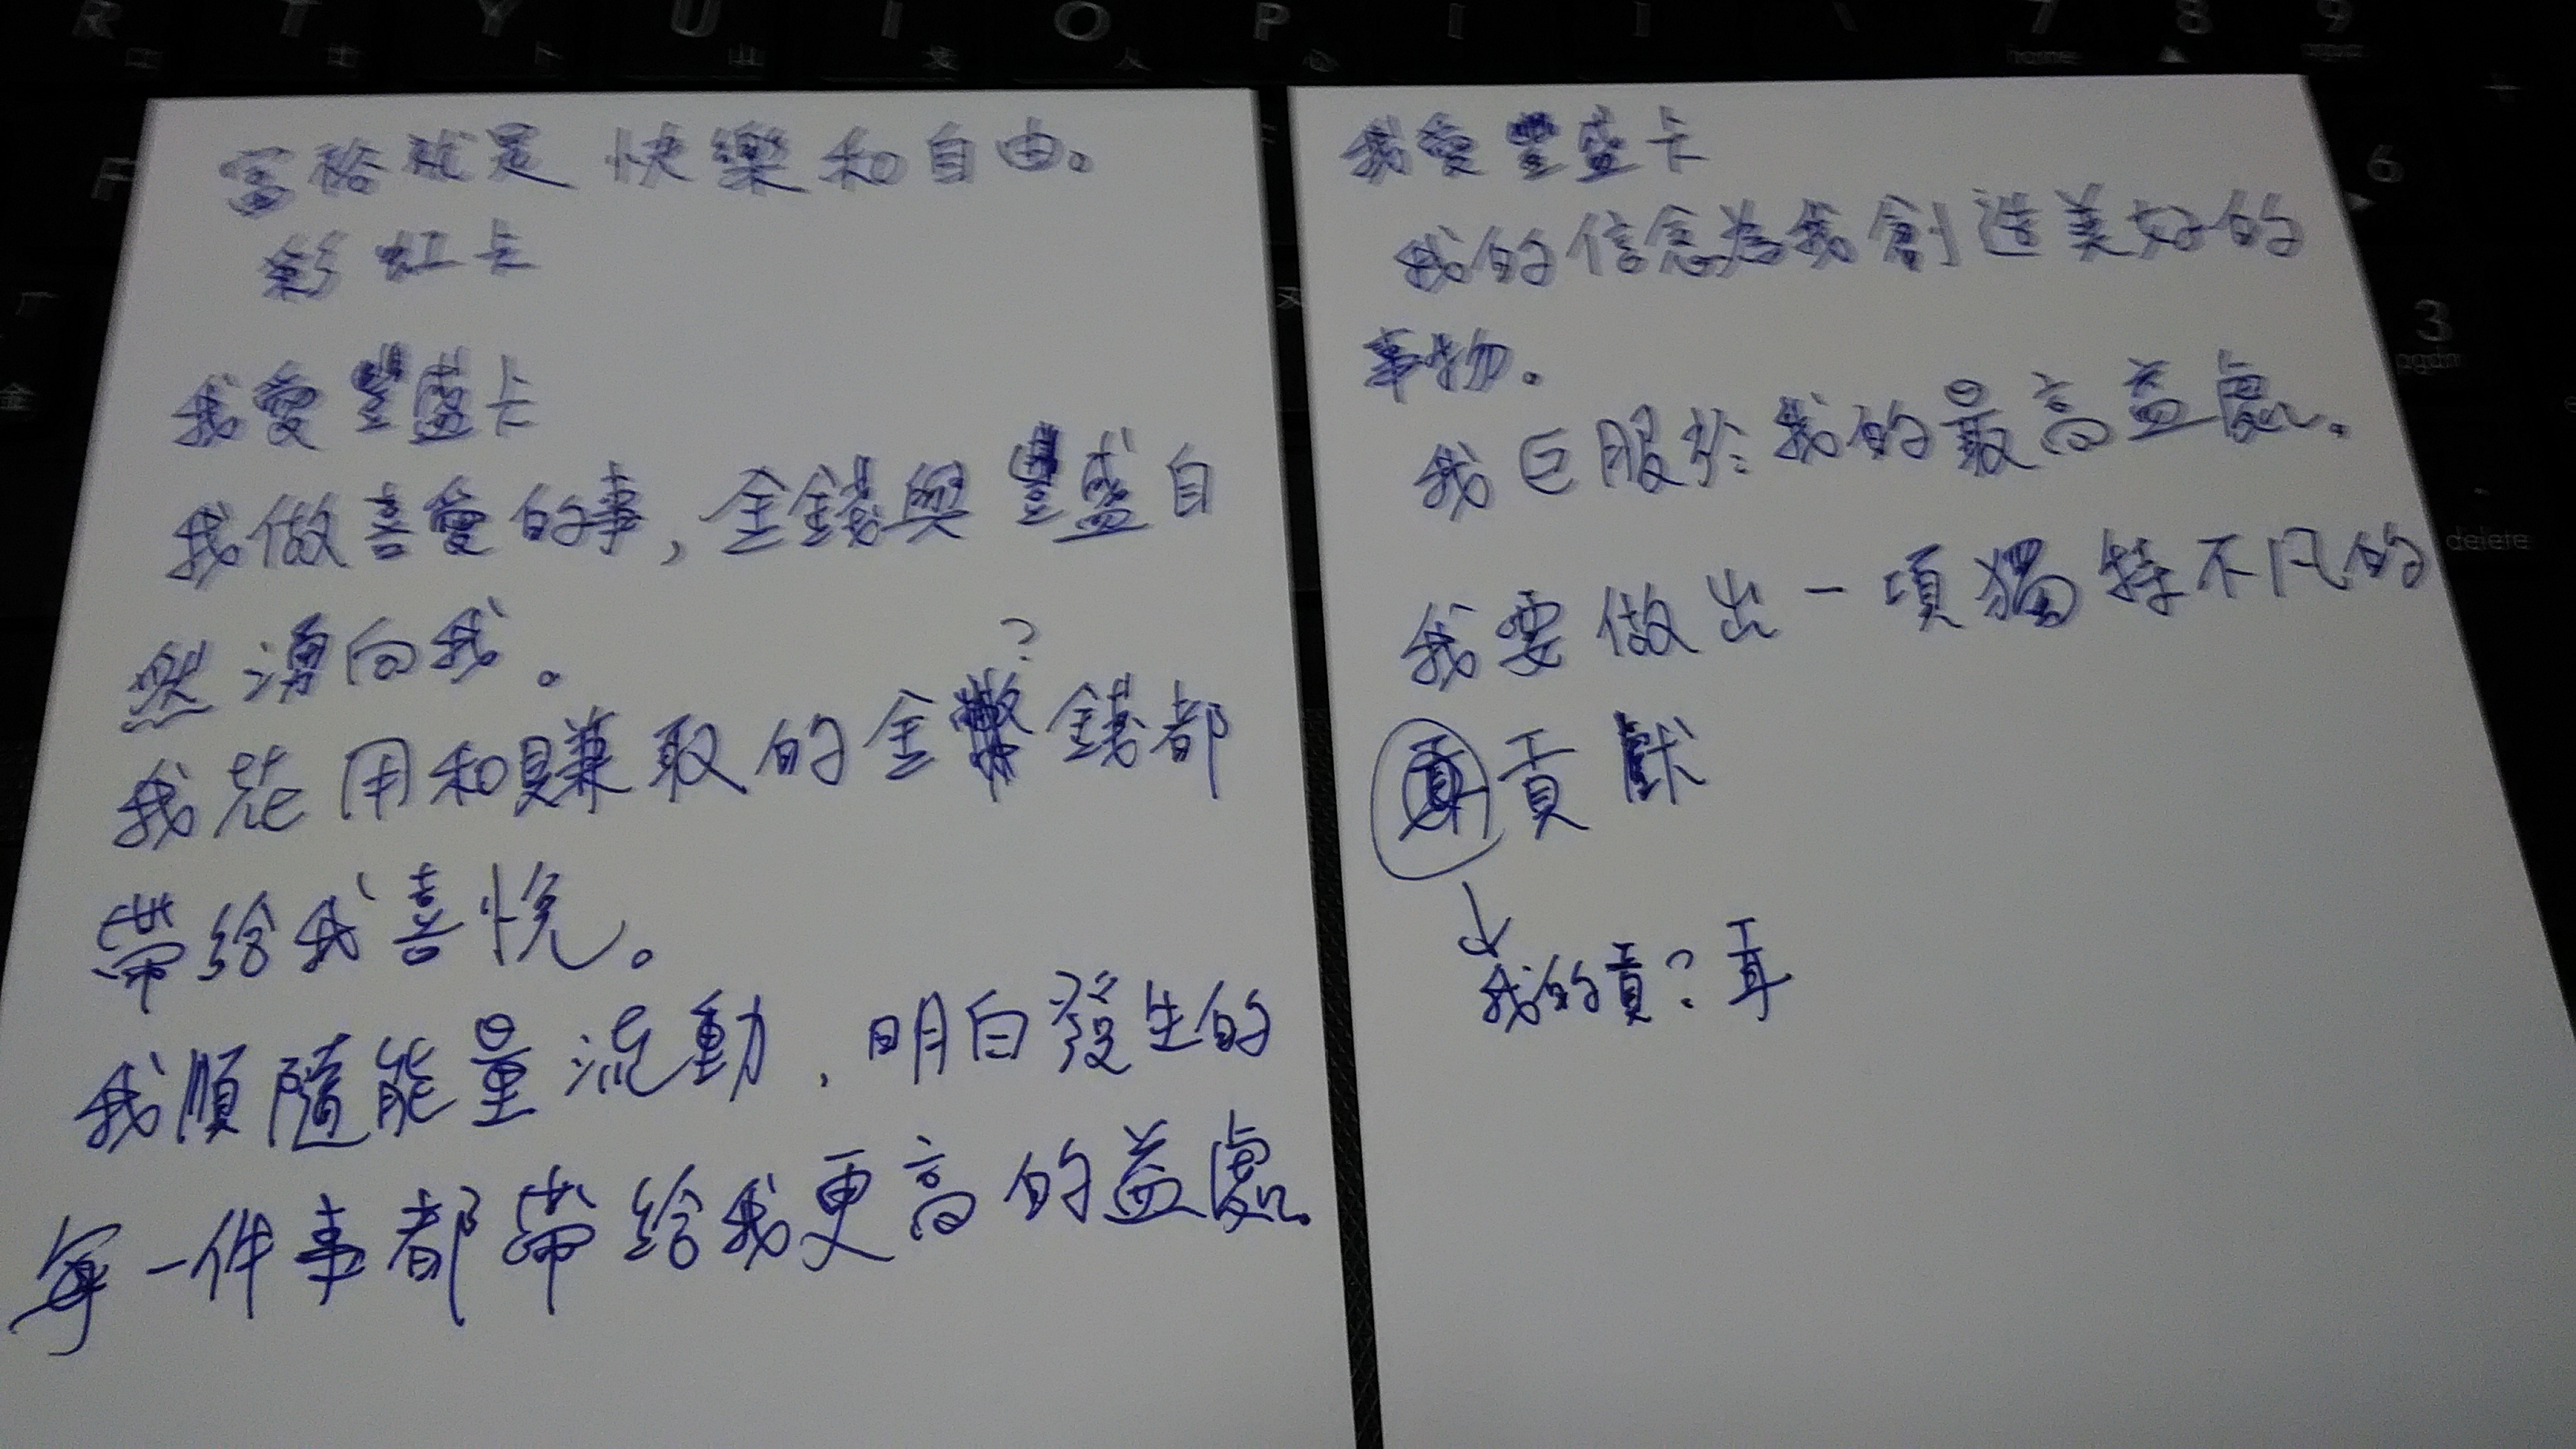 富裕就是 快樂和自由。
彩虹卡
我愛豐盛卡
我做喜愛的事，金錢與豐盛自
然湧向我。
?
我花用和賺取的金幣錢都
帶給我喜悅。
我順隨能量流動，明白發生的
每一件事都帶給我更高的益處。
我愛豐盛卡
我的信念為我創造美好的
事物。
我臣服於我的最高益處。
我要做出一項獨特不凡的
貢獻
我的貢?耳
R T Y U I O P [ ] \ 7 8 9
home
F
6
3
pgdn
delete
金